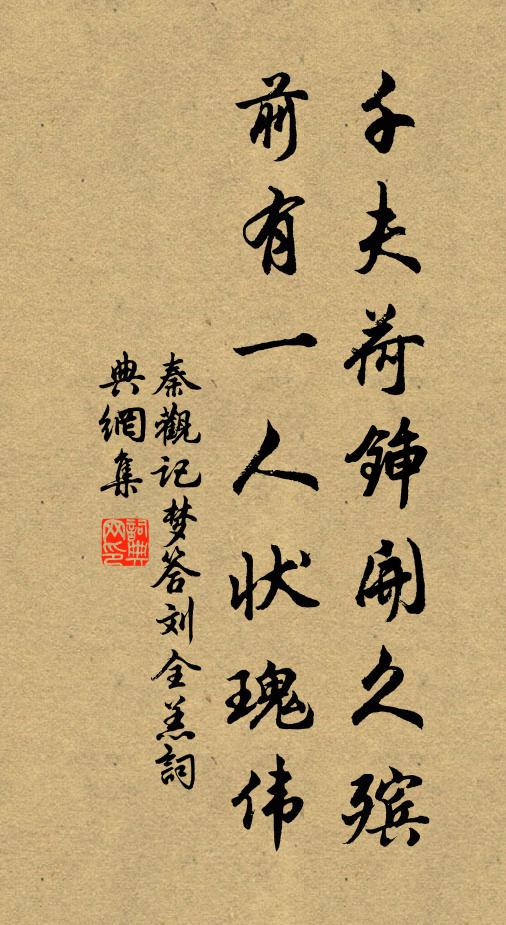 千夫荷鍤開久殡
前有一人状瑰伟
秦觀记梦答刘全美詞
典網集
詞典网印